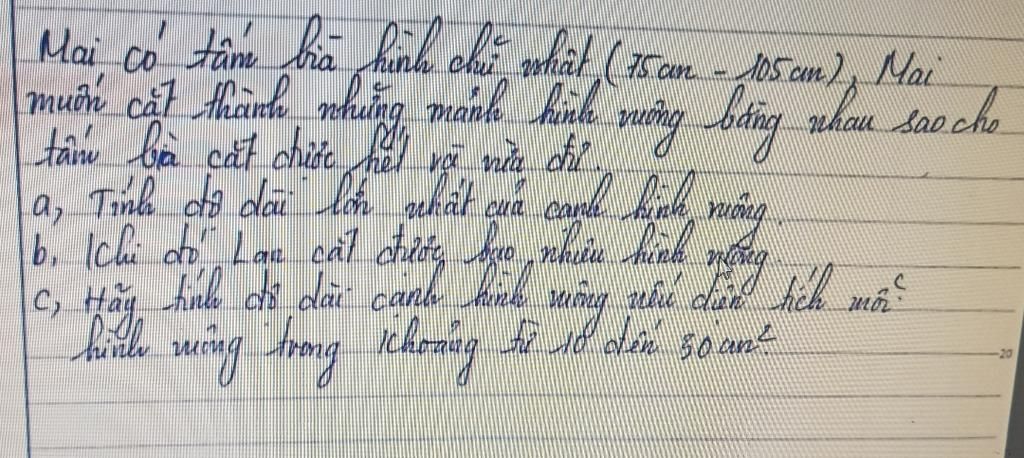 Mai có tấm bìa hình chữ nhật (75 cm - 105 cm), Mai
muốn cắt thành những mảnh hình vuông bằng nhau sao cho
tấm bìa cắt được hết và vừa đủ.
a, Tính độ dài lớn nhất của cạnh hình vuông.
b, Khi đó Lan cắt được bao nhiêu hình vuông.
c, Hãy tính độ dài cạnh hình vuông nếu diện tích mỗi
hình vuông trong khoảng từ 10 đến 30 cm².
20